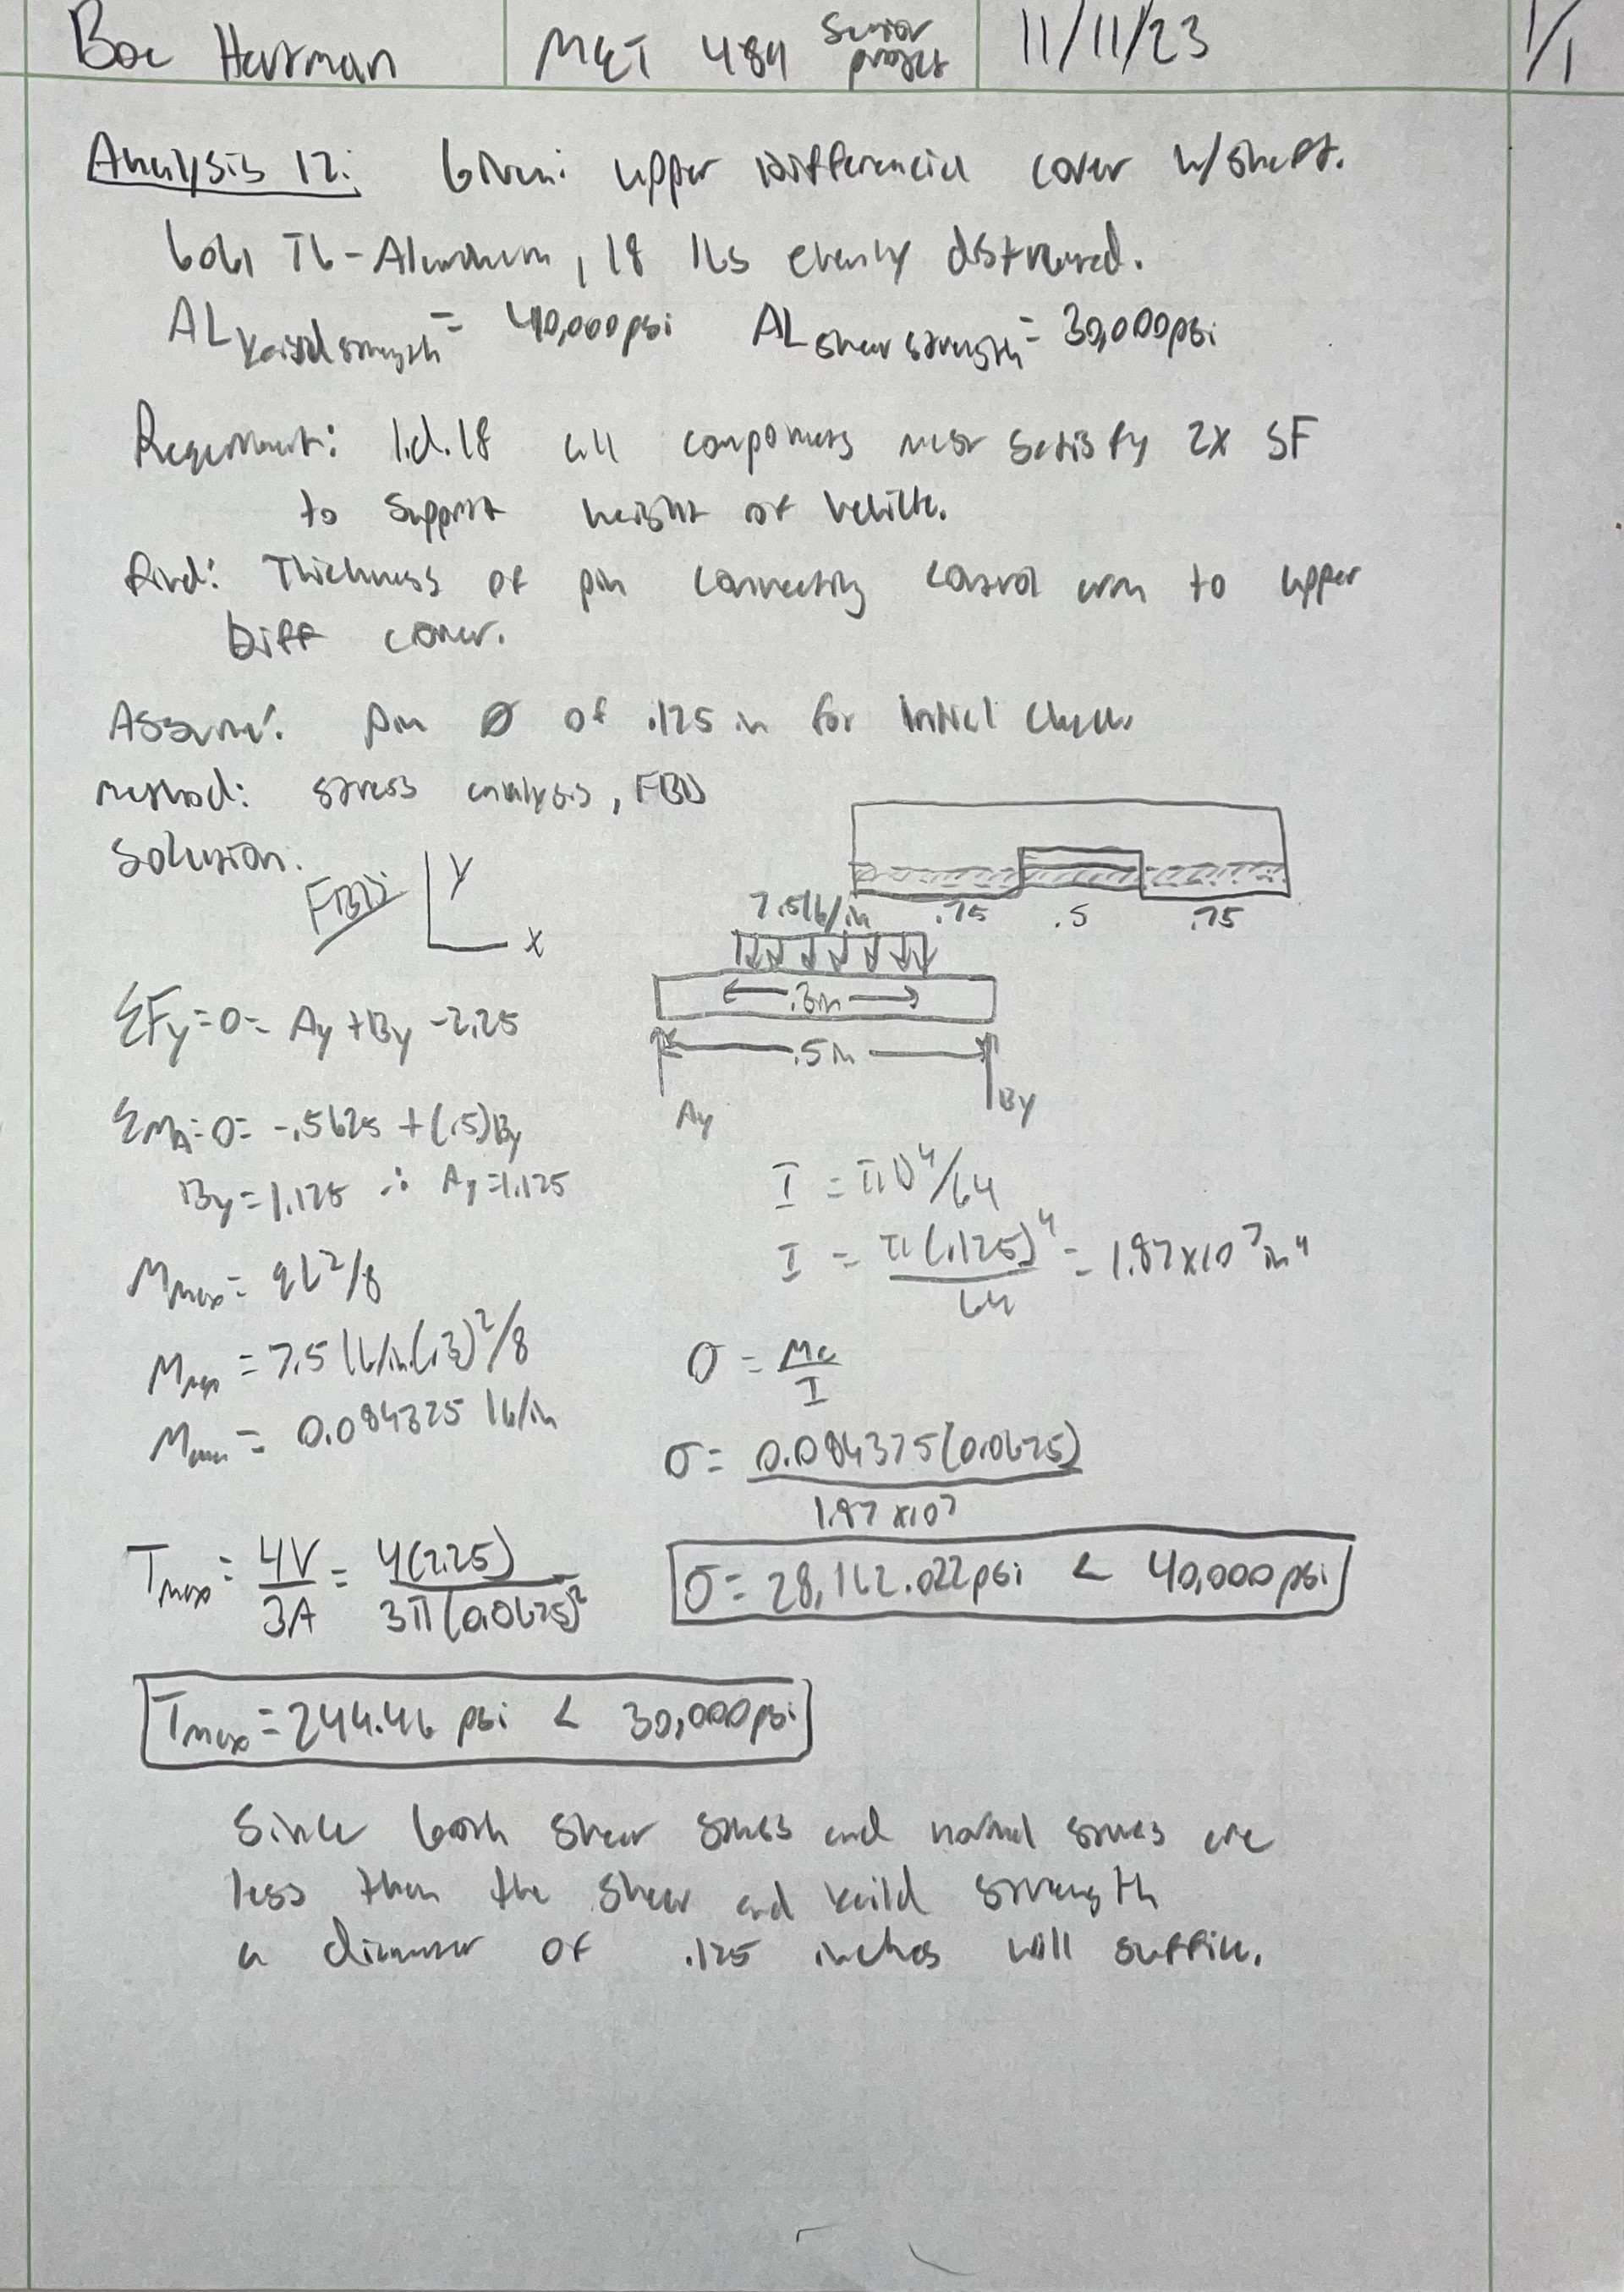 Boe Hartman MET 489 Senior project 11/11/23 1/1
Analysis 12: Given: upper Differencial cover w/shaft.
6061 T6-Aluminum, 18 lbs evenly distributed.
AL Yeild strength = 40,000psi AL shear strength = 30,000psi
Requirement: 1.d.18 all components must satisfy 2x SF
to support weight of vehicle.
Find: Thickness of pin connecting control arm to upper
Diff cover.
Assume: pin Ø of .125 in for initial check
method: stress analysis, FBD
Solution:
FBD Y X
.75 .5 .75
7.5lb/in
.3in
.5in
Ay By
ΣFy=0= Ay+By-2.25
ΣMA=0= -.5625 +(.5)By
By=1.125 ∴ Ay=1.125
I = πD⁴/64
I = π(.125)⁴/64 = 1.87x10⁷in⁴
Mmax= qL²/8
Mmax = 7.5 lb/in(.3)²/8
Mmax = 0.084375 lb/in
σ = Mc/I
σ= 0.084375(0.0625)/1.87x10⁷
Tmax = 4V/3A = 4(2.25)/3π(0.0625)²
σ= 28,162.022psi < 40,000psi
Tmax=244.46 psi < 30,000psi
Since both shear stress and normal stress are
less then the shear and yeild strength
a diameter of .125 inches will suffice.